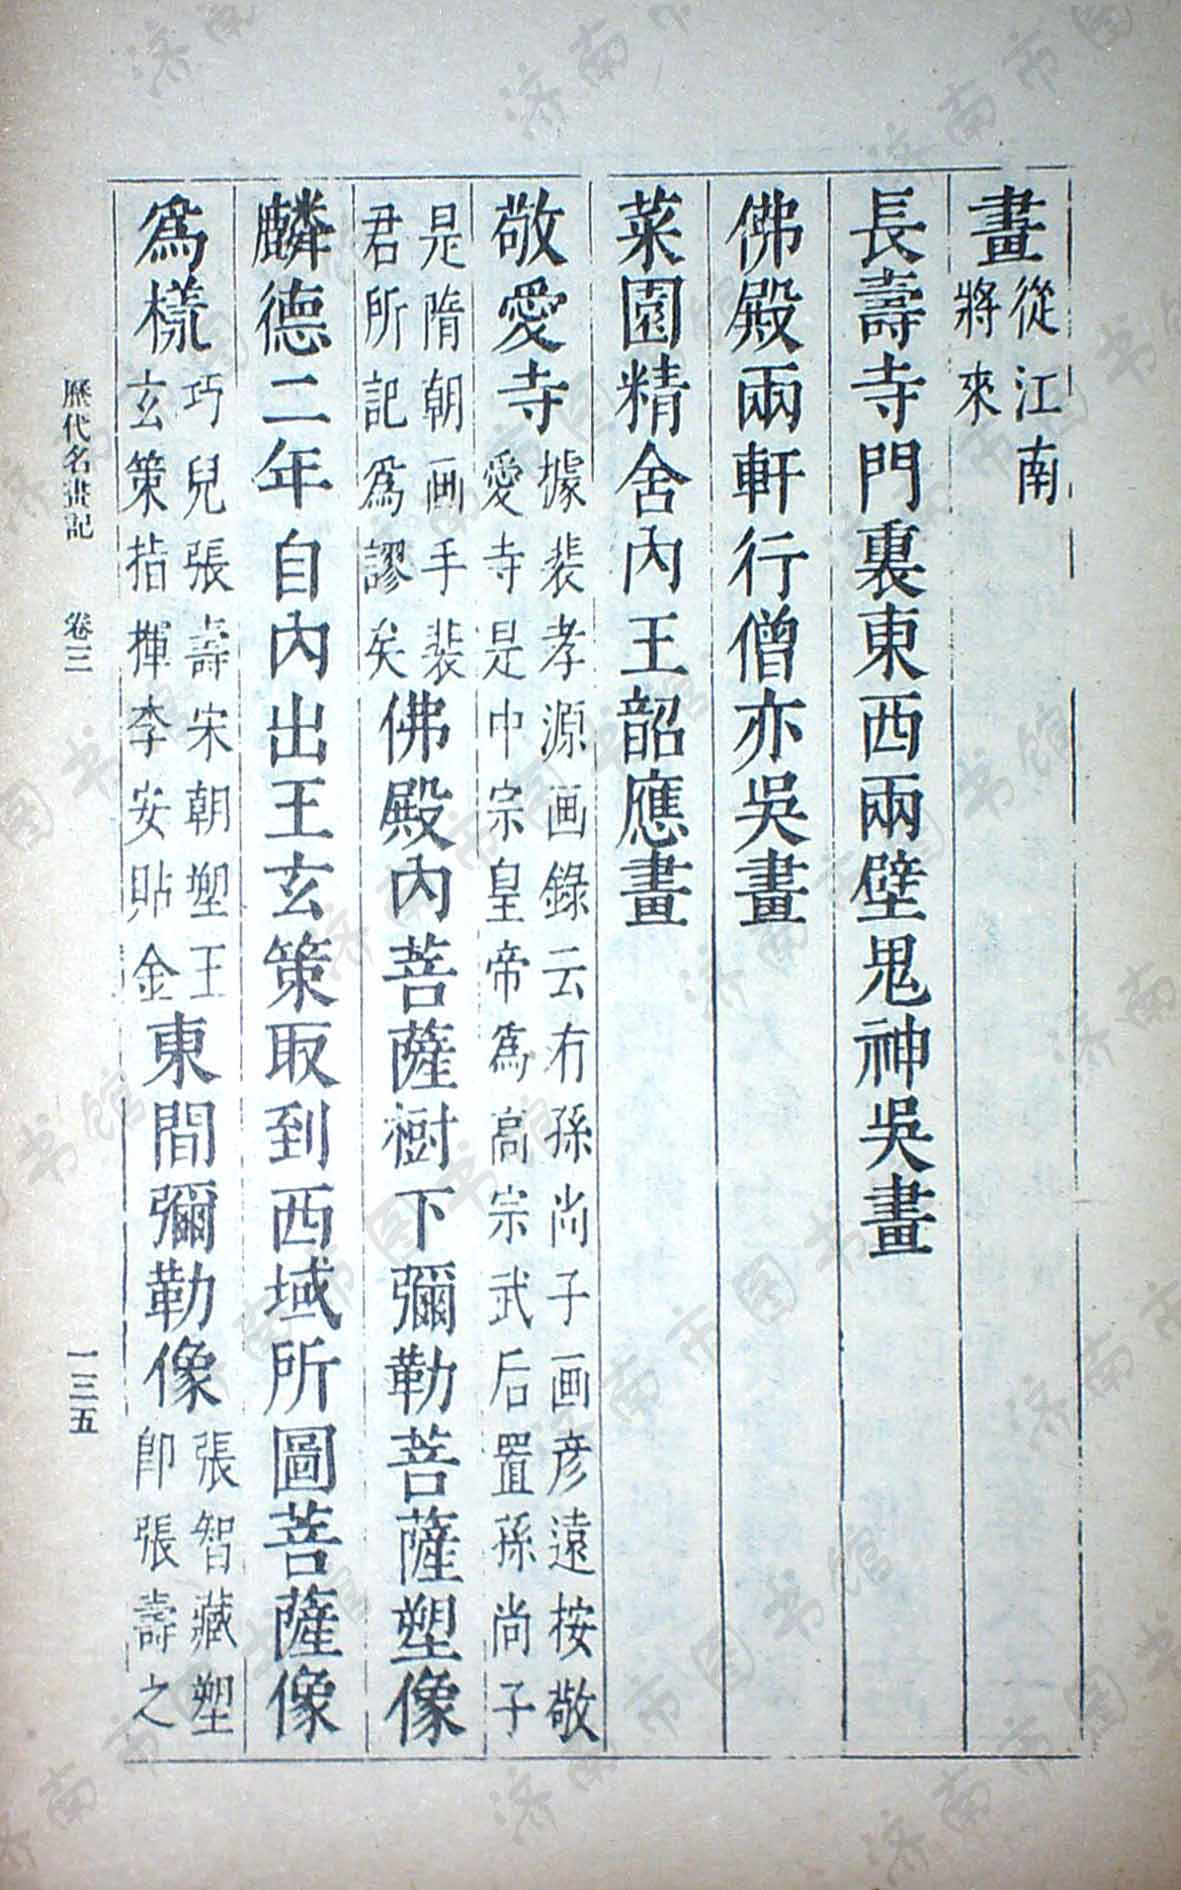 畫從江南將來
長壽寺門裏東西兩壁鬼神吳畫
佛殿兩軒行僧亦吳畫
菜園精舍內王韶應畫
敬愛寺據裴孝源画錄云有孫尚子画彦遠按敬愛寺是中宗皇帝為高宗武后置孫尚子
是隋朝画手裴君所記為謬矣佛殿內菩薩樹下彌勒菩薩塑像
麟德二年自內出王玄策取到西域所圖菩薩像
為樣巧兒張壽宋朝塑王玄策指揮李安貼金東間彌勒像張智藏塑卽張壽之
歷代名畫記 卷三 一三五
济南市图书馆